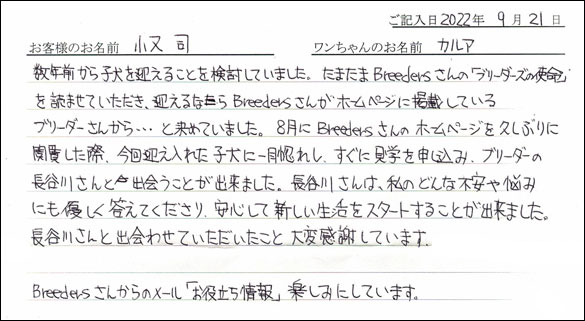 ご記入日2022年 9月 21日
お客様のお名前 小又 司 ワンちゃんのお名前 カルア
数年前から子犬を迎えることを検討していました。たまたまBreedersさんの「ブリーダーズの使命」
を読ませていただき、迎えるならBreedersさんがホームページに掲載している
ブリーダーさんから…と決めていました。8月にBreedersさんのホームページを久しぶりに
閲覧した際、今回迎え入れた子犬に一目惚れし、すぐに見学を申し込み、ブリーダーの
長谷川さんと出会うことが出来ました。長谷川さんは、私のどんな不安や悩み
にも優しく答えてくださり、安心して新しい生活をスタートすることが出来ました。
長谷川さんと出会わせていただいたこと大変感謝しています。
Breedersさんからのメール「お役立ち情報」楽しみにしています。